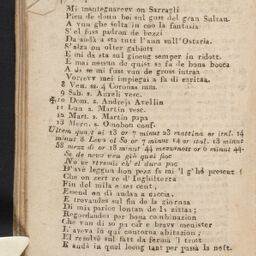 Mi insolegnarevv on Sarragli
Pien de dona boi sul gust del gran Sultan.
A vun ghe salta in coo la fantasia
S'el fuss padron de bozzi
Da andà a sta tutt l'ann sull'Ostaria.
S'alza on olter gabiott
E mi da sta sul gioeug semper in ridott.
E mai nessun de quist se fa de bona bocca
A de mi fuss vun de gross intrad
Vorrevv mei impiegai a fà di evrittaa.
8 Ven. ss. 4 Coronas mm.
9 Sab. s. Aurel vesc.
10 Dom. s. Andreja Avellin
11 Lun. s. Martin vesc.
12 Mart. s. Martin papa
13 Merc. s. Omobon conf.
Ultem quart ai 13 or 7 minut 28 mattina or ital. 14
minut 8 Leva el So or 7 minut 14 or ital. 13 minut
58 mezz dì or 18 minut 44 mezzanott or 6 minut 44.
Se de neuv ven giò quai fioc
No ve stremii cà el dura poc
D'avè leggiuu hon pezz fa mi 'l g'hè present
Che on zert re d'Inghilterra
Fin del milla e ses cent,
Essend on dì andaa a caccia,
E trovandes sul fin de la giornaa
Di mii pariec lontan de la zittaa;
Regordandes per bona combinazion
Che van di so pa car e bravv menister
L'aveva in quì contorna abitazion;
El resolvè sul fatt da fermà 'l trott
E andà in quel loeug tant per passà la nott.